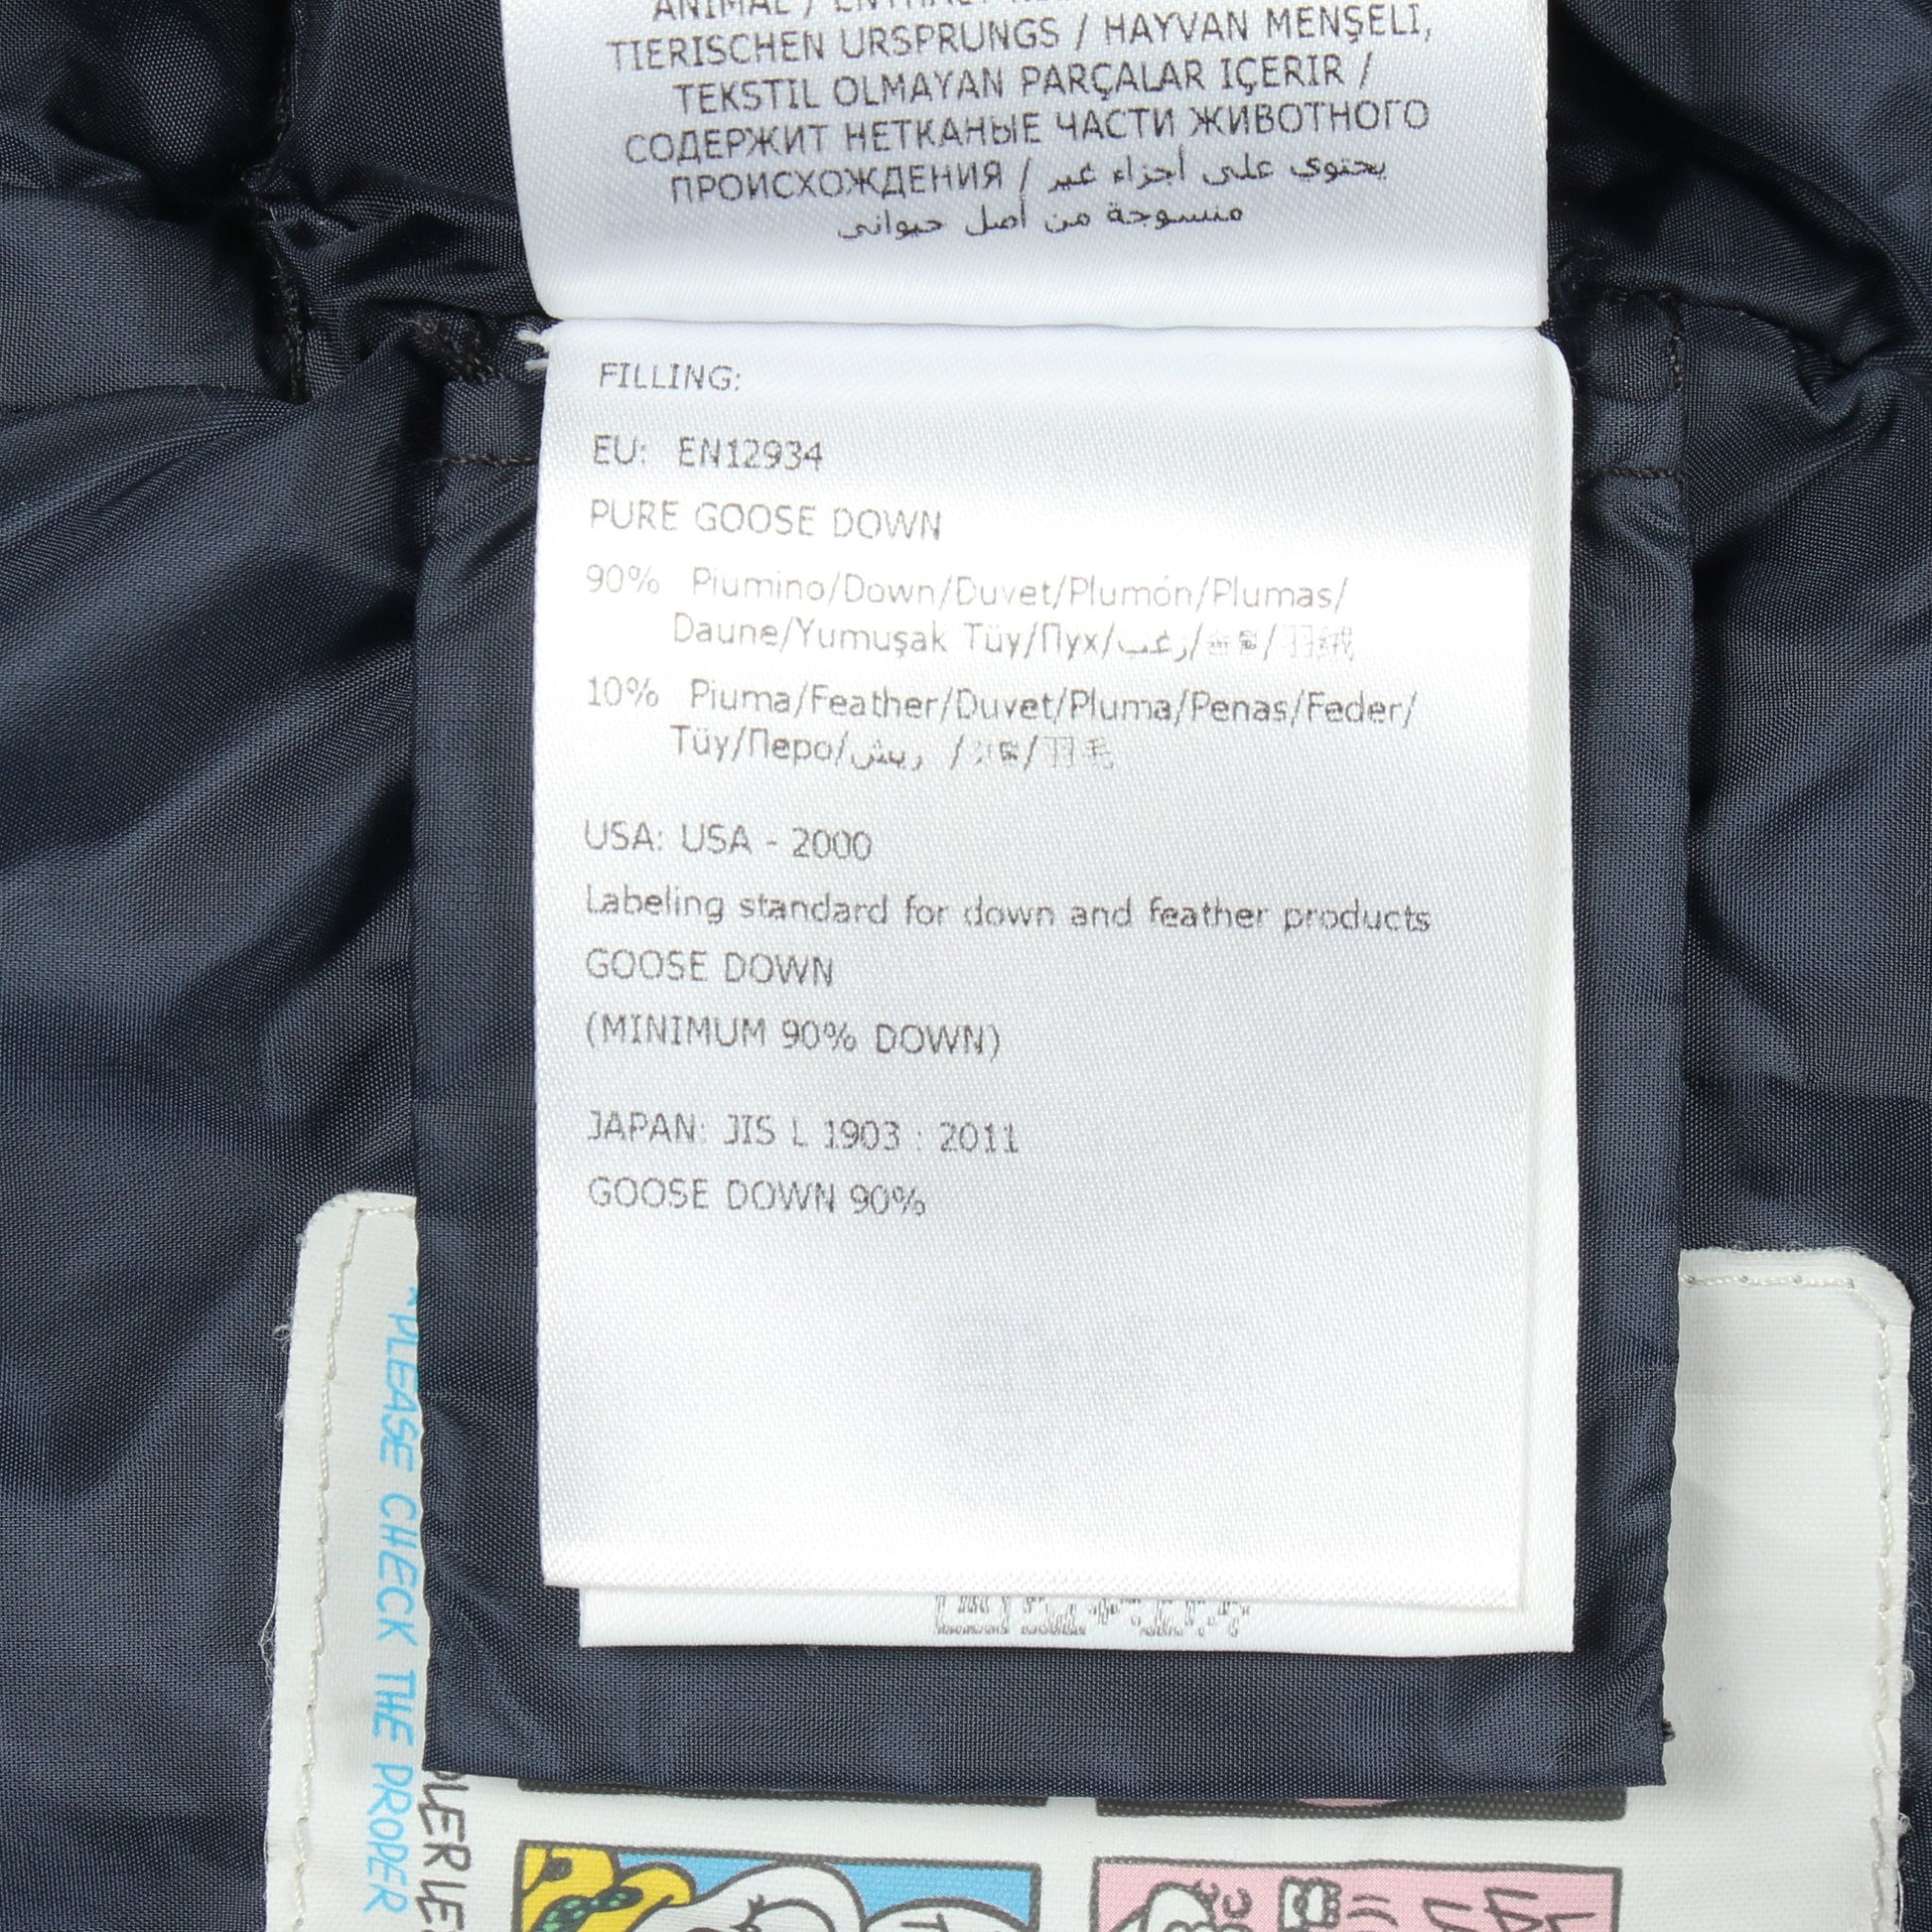 TIERISCHEN URSPRUNGS / HAYVAN MENŞELI,
TEKSTIL OLMAYAN PARÇALAR IÇERIR /
СОДЕРЖИТ НЕТКАНЫЕ ЧАСТИ ЖИВОТНОГО
ПРОИСХОЖДЕНИЯ / يحتوي على أجزاء غير
منسوجة من أصل حيواني
FILLING:
EU: EN12934
PURE GOOSE DOWN
90% Piumino/Down/Duvet/Plumón/Plumas/
Daune/Yumuşak Tüy/Пух/زغب/ /羽绒
10% Piuma/Feather/Duvet/Pluma/Penas/Feder/
Tüy/Перо/ريش / /羽毛
USA: USA - 2000
Labeling standard for down and feather products
GOOSE DOWN
(MINIMUM 90% DOWN)
JAPAN: JIS L 1903 : 2011
GOOSE DOWN 90%
PLEASE CHECK THE PROPER